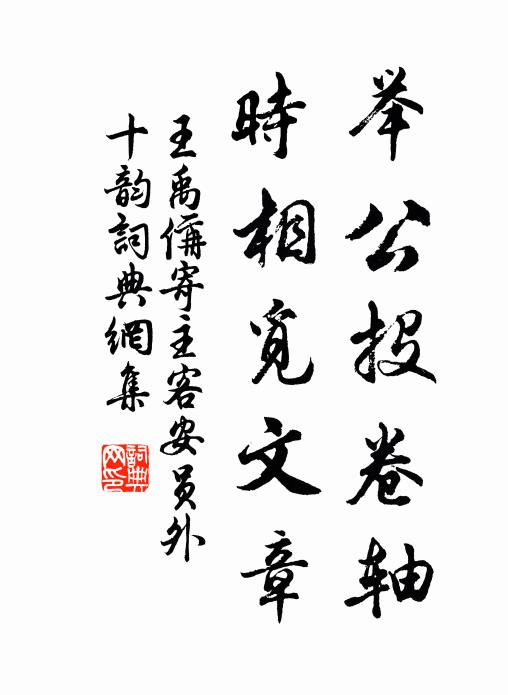 举公投卷轴
時相觅文章
王禹偁寄主客安员外
十韵詞典網集
詞典
网印